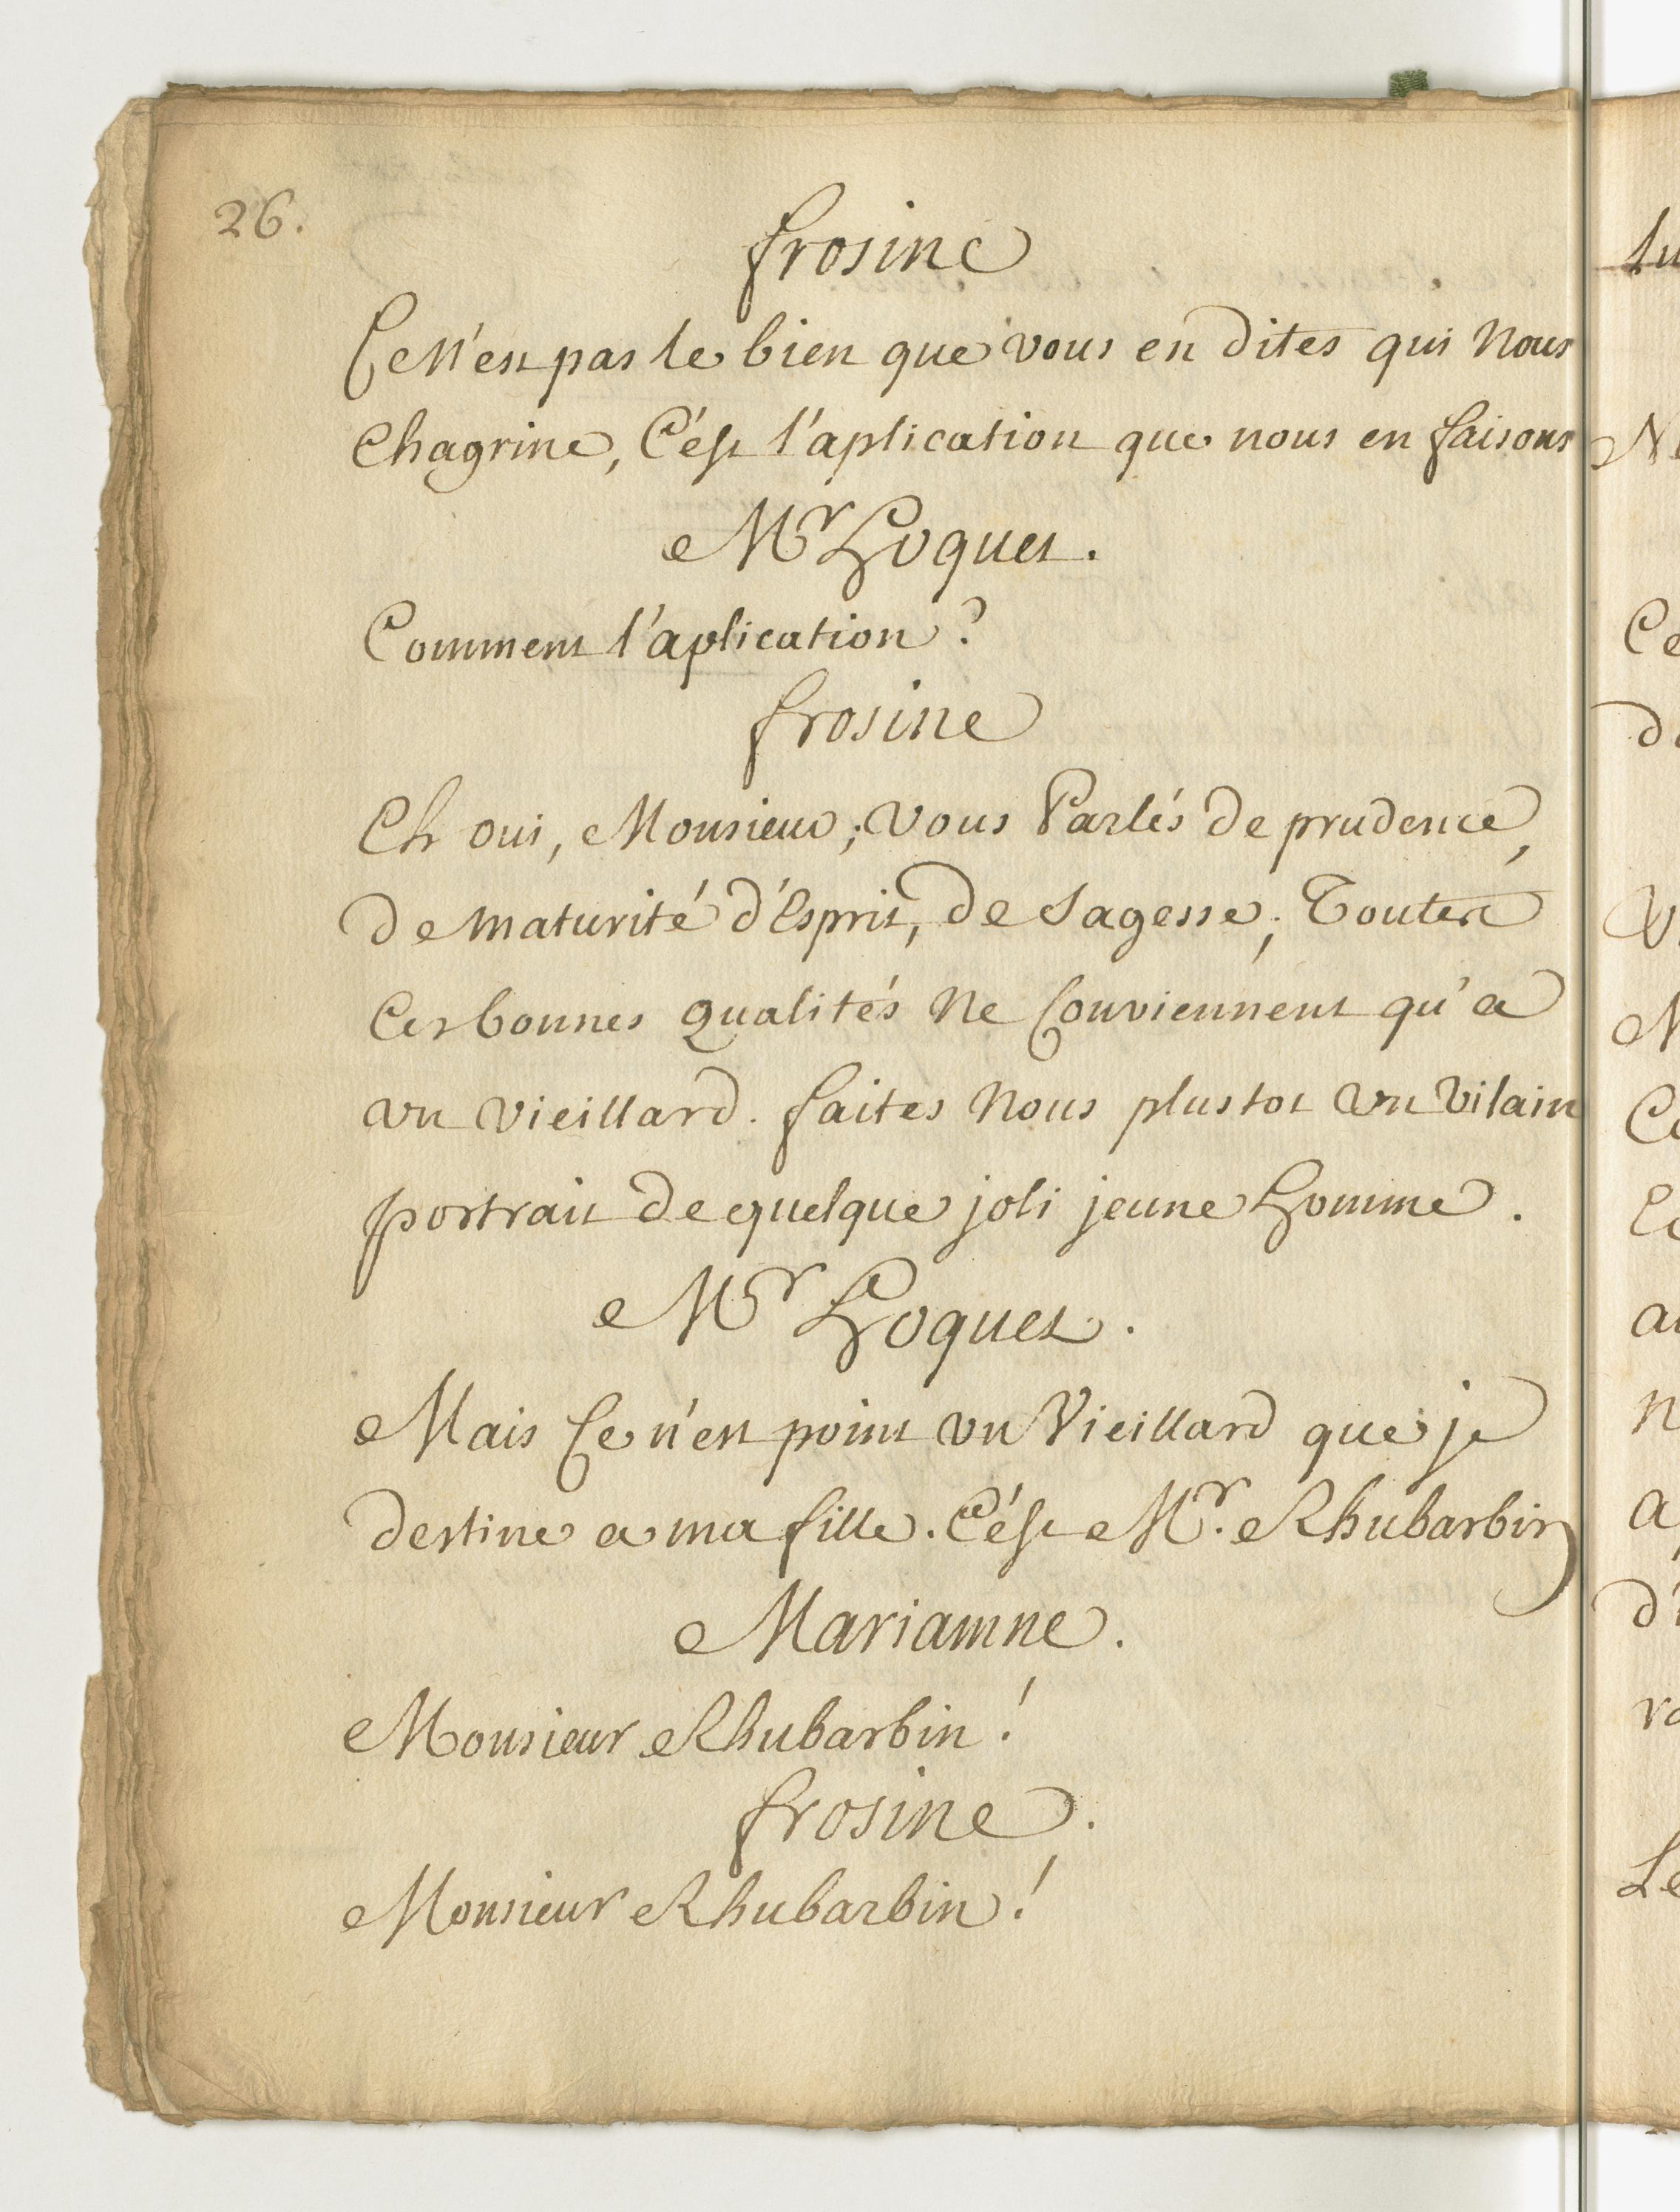 26.
frosine
Ce N'est pas le bien que vous en dites qui Nous
Chagrine, C'ést l'aplication que nous en faisons
Mr Hoquet.
Comment l'aplication?
frosine
Eh oui, Monsieur; Vous Parlés de prudence,
de maturité d'Esprit, de Sagesse; Toutes
Ces bonnes qualités Ne Conviennent qu'a
vn vieillard. faites Nous plustot vn Vilain
portrait de quelque joli jeune homme.
Mr Hoquet.
Mais Ce n'est point vn Vieillard que je
destine a ma fille. C'ést Mr. Rhubarbin
Mariamne.
Monsieur Rhubarbin!
frosine.
Monsieur Rhubarbin!